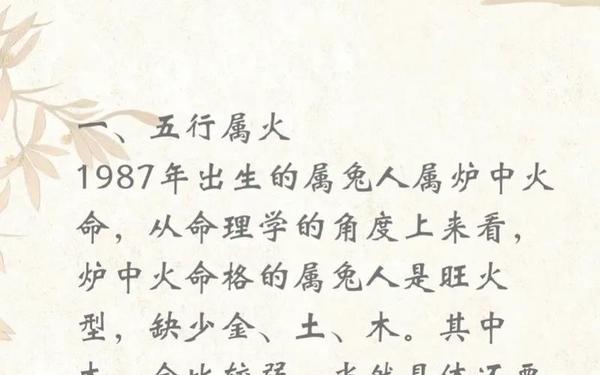 一、五行属火
1987年出生的属兔人属炉中火
命，从命理学的角度上来看，
炉中火命格的属兔人是旺火
型，缺少金、土、木。其中